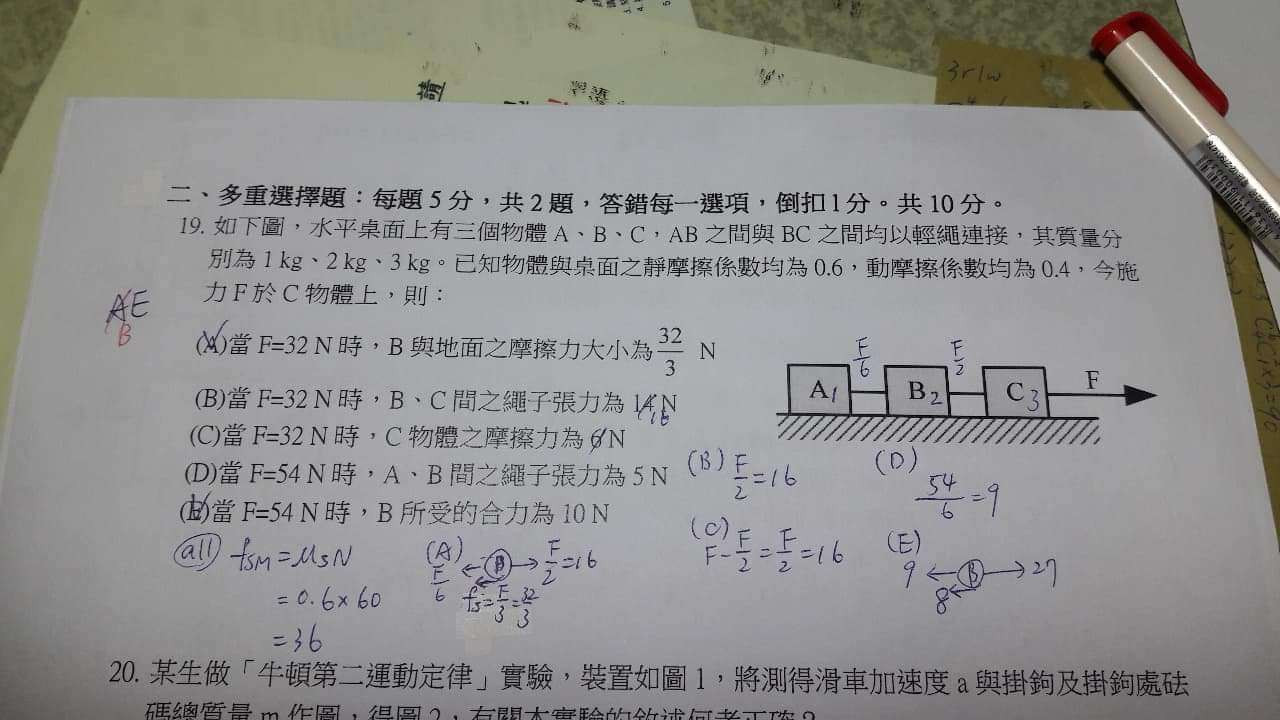 3r/w
二、多重選擇題：每題5分，共2題，答錯每一選項，倒扣1分。共10分。
19. 如下圖，水平桌面上有三個物體 A、B、C，AB 之間與 BC 之間均以輕繩連接，其質量分
別為 1 kg、2 kg、3 kg。已知物體與桌面之靜摩擦係數均為 0.6，動摩擦係數均為 0.4，今施
力 F 於 C 物體上，則：
AE
B
(A)當 F=32 N 時，B 與地面之摩擦力大小為 32/3 N
(B)當 F=32 N 時，B、C 間之繩子張力為 14 N
16
(C)當 F=32 N 時，C 物體之摩擦力為 6 N
(D)當 F=54 N 時，A、B 間之繩子張力為 5 N
(E)當 F=54 N 時，B 所受的合力為 10 N
F/6 F/2
A1 B2 C3 F
(B) F/2=16
(D) 54/6=9
(C) F-F/2=F/2=16
(E) 9 B 27
8
(all) fsM=μsN
=0.6×60
=36
(A) F/6 B F/2=16
fs=F/3=32/3
20. 某生做「牛頓第二運動定律」實驗，裝置如圖 1，將測得滑車加速度 a 與掛鉤及掛鉤處砝
碼總質量 m 作圖，得圖 2，有關本實驗的敘述何者正確？